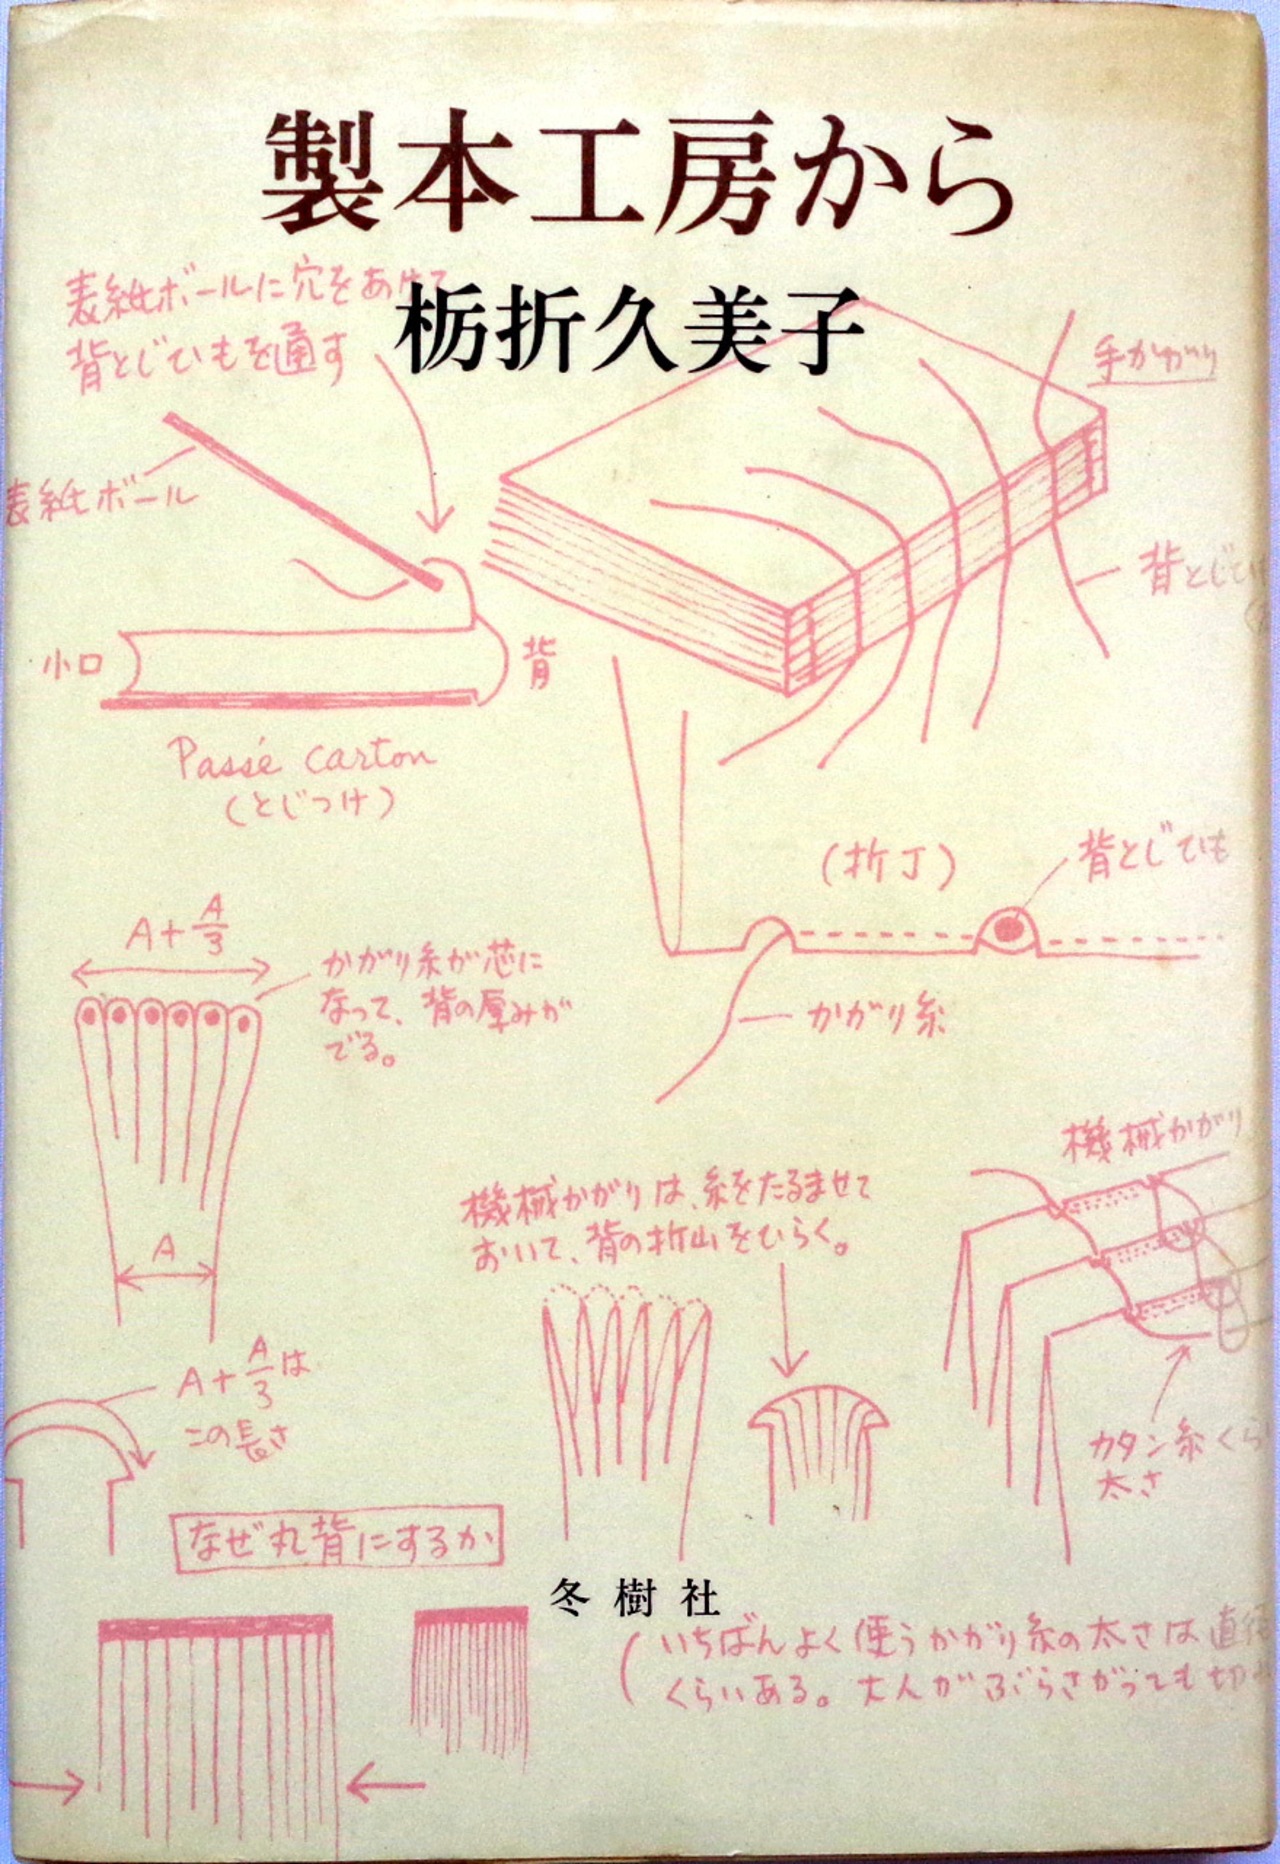 製本工房から
栃折久美子
表紙ボールに穴をあけて
背とじひもを通す
手かがり
表紙ボール
背とじひ
小口
背
Passé carton
(とじつけ)
(折丁)
背とじひも
A+A/3
かがり糸が芯に
なって、背の厚みが
でる。
かがり糸
機械かがり
機械かがりは、糸をたるませて
おいて、背の折山をひらく。
A
A+A/3は
この長さ
カタン糸くら
太さ
なぜ丸背にするか
冬樹社
(いちばんよく使うかがり糸の太さは直径
くらいある。大人がぶらさがっても切